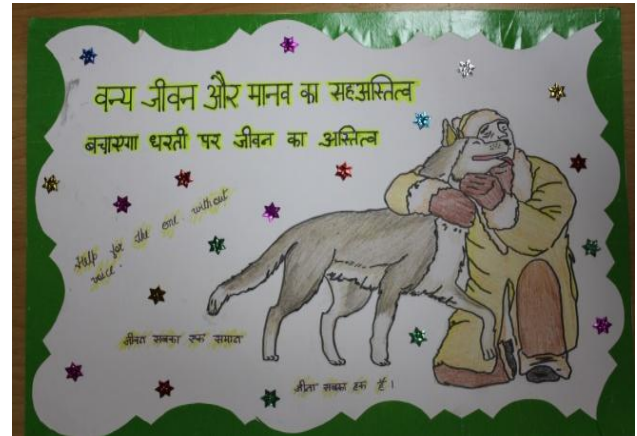 वन्य जीवन और मानव का सहअस्तित्व
बचाएगा धरती पर जीवन का अस्तित्व
Help for the one without
voice.
जीवन सबका एक समान
जीना सबका हक है।